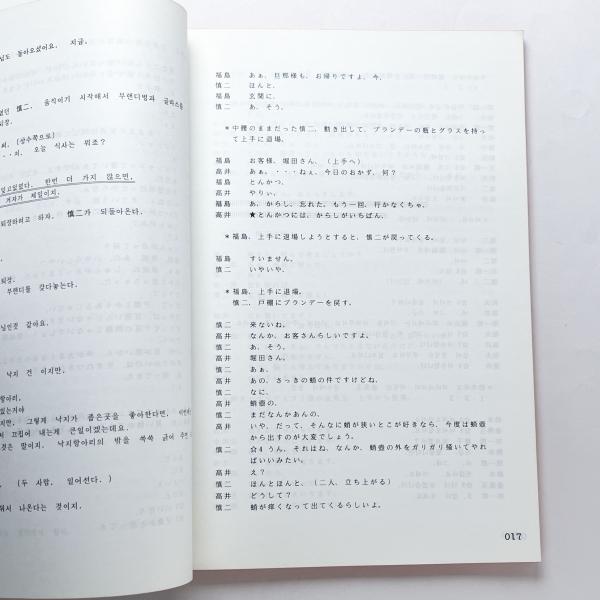 님도 돌아오셨어요. 지금.
었던 慎二. 움직이기 시작해서 부랜디병과 글라스를
퇴장.
씨. (상수쪽으로)
···의. 오늘 식사는 뭐죠?
잊고있었다. 한번 더 가지 않으면,
겨자가 제일이지.
퇴장하려고 하자, 慎二가 되돌아온다.
퇴장.
부랜디를 갖다놓는다.
님인것 같아요.
낙지 건 이지만,
항아리,
있는거야
지만, 그렇게 낙지가 좁은곳을 좋아한다면,
서 끄집어 내는게 큰일이겠는데요.
것은 말이지, 낙지항아리의 밖을 쓱쓱 긁어
(두 사람, 일어선다.)
워서 나온다는 것이지.
福島 あぁ、旦那様も、お帰りですよ、今。
慎二 ほんと。
福島 玄関に。
慎二 あ、そう。
＊中腰のままだった慎二、動き出して、ブランデーの瓶とグラスを持っ
て上手に退場。
福島 お客様、堀田さん、(上手へ)
高井 あぁ。・・・ねぇ、今日のおかず、何？
福島 とんかつ。
高井 やりぃ。
福島 あ、からし、忘れた。もう一回、行かなくちゃ。
高井 ★とんかつには、からしがいちばん。
＊福島、上手に退場しようとすると、慎二が戻ってくる。
福島 すいません。
慎二 いやいや。
＊福島、上手に退場。
慎二、戸棚にブランデーを戻す。
慎二 来ないね。
高井 なんか、お客さんらしいですよ。
慎二 あ、そう。
高井 堀田さん。
慎二 あぁ。
高井 あの、さっきの蛸の件ですけどね、
慎二 なに。
高井 蛸壺の。
慎二 まだなんかあんの。
高井 いや、だって、そんなに蛸が狭いとこが好きなら、今度は蛸壺
から出すのが大変でしょう。
慎二 ☆4 うん、それはね、なんか、蛸壺の外をガリガリ掻いてやれ
ばいいみたい。
高井 え？
慎二 ほんとほんと、(二人、立ち上がる)
高井 どうして？
慎二 蛸が痒くなって出てくるらしいよ。
017